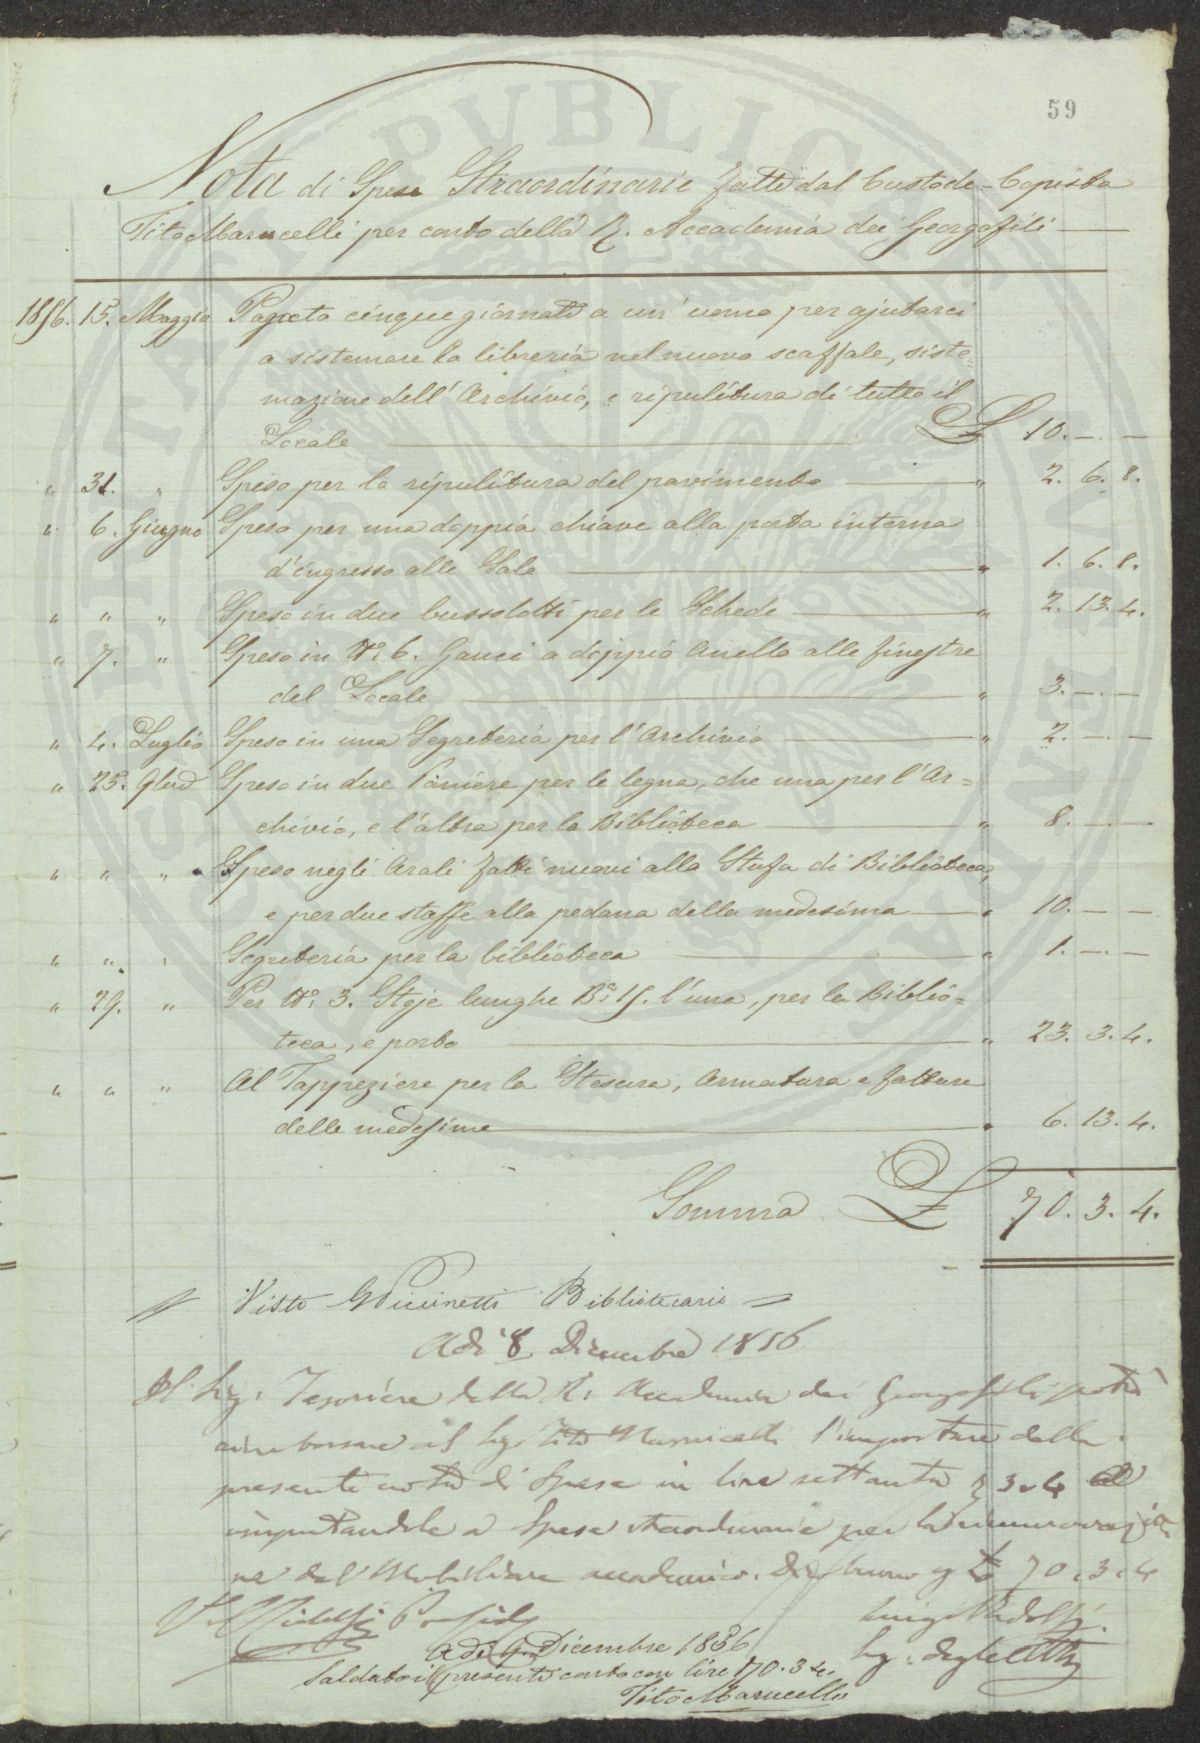 PROSPERITATI PVBLICAE AVGENDAE
59
Nota di Spese Straordinarie fatte dal Custode-Copista
Tito Marucelli per conto della R. Accademia dei Georgofili
1856. 15. Maggio Pagato cinque giornate a un' uomo per ajutarci
a sistemare la libreria nel nuovo scaffale, siste=
mazione dell'Archivio, e ripulitura di tutto il
Locale £ 10. — . —
" 31. " Speso per la ripulitura del pavimento " 2. 6. 8.
" 6. Giugno Speso per una doppia chiave alla porta interna
d'ingresso alle Sale " 1. 6. 8.
" " " Speso in due bussolotti per le Schede " 2. 13. 4.
" 7. " Speso in No. 6. Ganci a doppio Anello alle finestre
del Locale " 3. — . —
" 4. Luglio Speso in una Segreteria per l'Archivio " 2. — . —
" 25. 9bre Speso in due Paniere per le legna, che una per l'Ar=
chivio, e l'altra per la Biblioteca " 8. — . —
" " " Speso negli Arali fatti nuovi alla Stufa di Biblioteca,
e per due staffe alla pedana della medesima " 10. — . —
" " " Segreteria per la biblioteca " 1. — . —
" 29. " Per No. 3. Stoje lunghe Ba. 15. l'una, per la Biblio=
teca, e porto " 23. 3. 4.
" " " Al Tappeziere per la Stesura, Armatura e fattura
delle medesime " 6. 13. 4.
Somma £ 70. 3. 4.
Visto G Piccinetti Bibliotecario
Adi 8 Dicembre 1856
Il Sig. Tesoriere della R. Accademia dei Georgofili potrà
rimborsare al Sig. Tito Marucelli l'importare della
presente nota di Spese in lire settanta 3 . 4
imputandole a Spese straordinarie per la
ne del Mobiliare accademico. £ 70. 3. 4
V. Ridolfi Presid.
Luigi Ridolfi
Adi 9 Dicembre 1856
Saldato il presente conto con lire 70. 3. 4.
Tito Marucelli